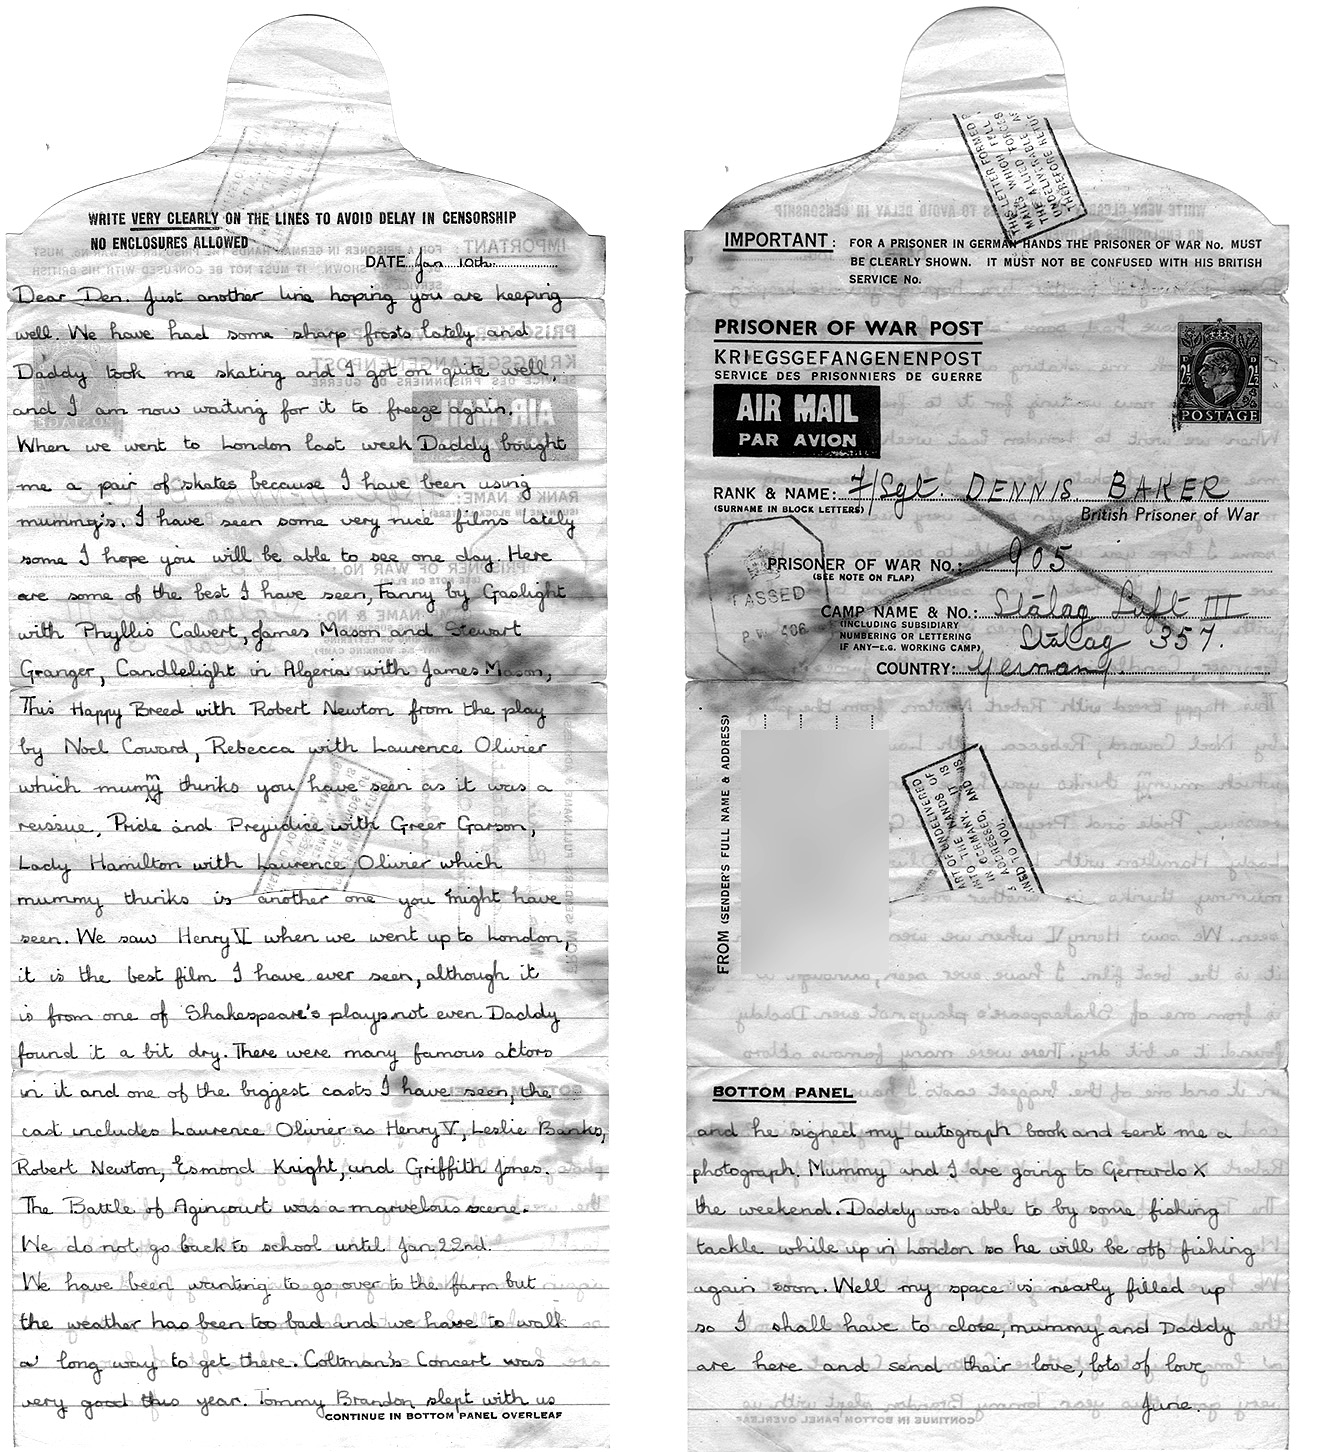 WRITE VERY CLEARLY ON THE LINES TO AVOID DELAY IN CENSORSHIP
NO ENCLOSURES ALLOWED
DATE Jan 10th.
Dear Den. Just another line hoping you are keeping
well. We have had some sharp frosts lately and
Daddy took me skating and I got on quite well,
and I am now waiting for it to freeze again.
When we went to London last week Daddy bought
me a pair of skates because I have been using
mummy's. I have seen some very nice films lately
some I hope you will be able to see one day. Here
are some of the best I have seen, Fanny by Gaslight
with Phyllis Calvert, James Mason and Stewart
Granger, Candlelight in Algeria with James Mason,
This Happy Breed with Robert Newton from the play
by Noel Coward, Rebecca with Laurence Olivier
which mummy thinks you have seen as it was a
reissue, Pride and Prejudice with Greer Garson,
Lady Hamilton with Laurence Olivier which
mummy thinks is another one you might have
seen. We saw Henry V when we went up to London,
it is the best film I have ever seen, although it
is from one of Shakespeare's plays not even Daddy
found it a bit dry. There were many famous actors
in it and one of the biggest casts I have seen, the
cast includes Laurence Olivier as Henry V, Leslie Banks,
Robert Newton, Esmond Knight, and Griffith Jones.
The Battle of Agincourt was a marvelous scene.
We do not go back to school until Jan 22nd.
We have been wanting to go over to the farm but
the weather has been too bad and we have to walk
a long way to get there. Coltman's Concert was
very good this year. Tommy Brandon slept with us
CONTINUE IN BOTTOM PANEL OVERLEAF
THIS LETTER FORMED P
MAILS WHICH FELL
THE ALLIED FORCES
UNDELIVERABLE AS
THEREFORE RETUR
IMPORTANT: FOR A PRISONER IN GERMAN HANDS THE PRISONER OF WAR No. MUST
BE CLEARLY SHOWN. IT MUST NOT BE CONFUSED WITH HIS BRITISH
SERVICE No.
PRISONER OF WAR POST
KRIEGSGEFANGENENPOST
SERVICE DES PRISONNIERS DE GUERRE
AIR MAIL
PAR AVION
2½D
POSTAGE
RANK & NAME: F/Sgt. DENNIS BAKER
(SURNAME IN BLOCK LETTERS)
British Prisoner of War
PRISONER OF WAR No.: 905
(SEE NOTE ON FLAP)
PASSED
P.W. 406
CAMP NAME & No.: Stalag Luft III
(INCLUDING SUBSIDIARY
NUMBERING OR LETTERING
IF ANY—E.G. WORKING CAMP)
Stalag 357.
COUNTRY: Germany.
FROM (SENDER'S FULL NAME & ADDRESS)
ART OF UNDELIVERED
INTO THE HANDS OF
IN GERMANY. IT IS
ADDRESSED, AND IS
NED TO YOU.
BOTTOM PANEL
and he signed my autograph book and sent me a
photograph. Mummy and I are going to Gerrards X
the weekend. Daddy was able to by some fishing
tackle while up in London so he will be off fishing
again soon. Well my space is nearly filled up
so I shall have to close, mummy and Daddy
are here and send their love, lots of love
June.